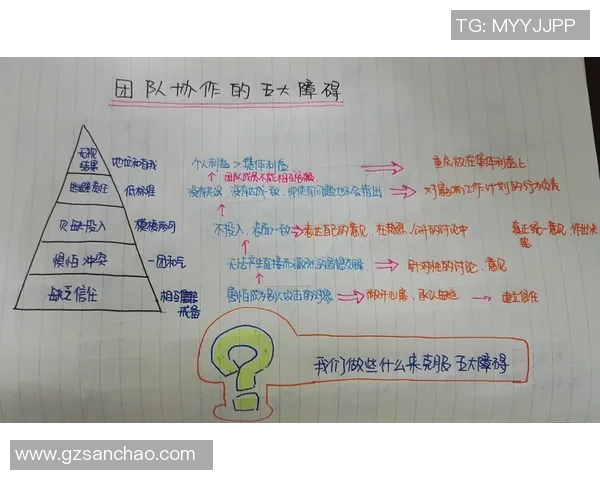 TG: MYYJJPP
团队协作的五大障碍
无视结果 地位和自我 个人利益 > 集体利益 重点放在集体利益上
团队成员不能相互
逃避责任 低标准 没有 没有达成一致,即使有问题也不会指出 对影响工作计划的行为负责
欠缺投入 模棱两可 不投入,表面一致 表达自己的意见,在 公开的讨论中 真正统一意见,作出决策
惧怕冲突 一团和气 无法产生直接而激烈的思想交锋 针对性的讨论、意见
缺乏信任 相互 戒备 害怕成为别人攻击的对象 敞开心扉,承认 建立信任
我们做些什么来克服五大障碍
www.gzsanchao.com